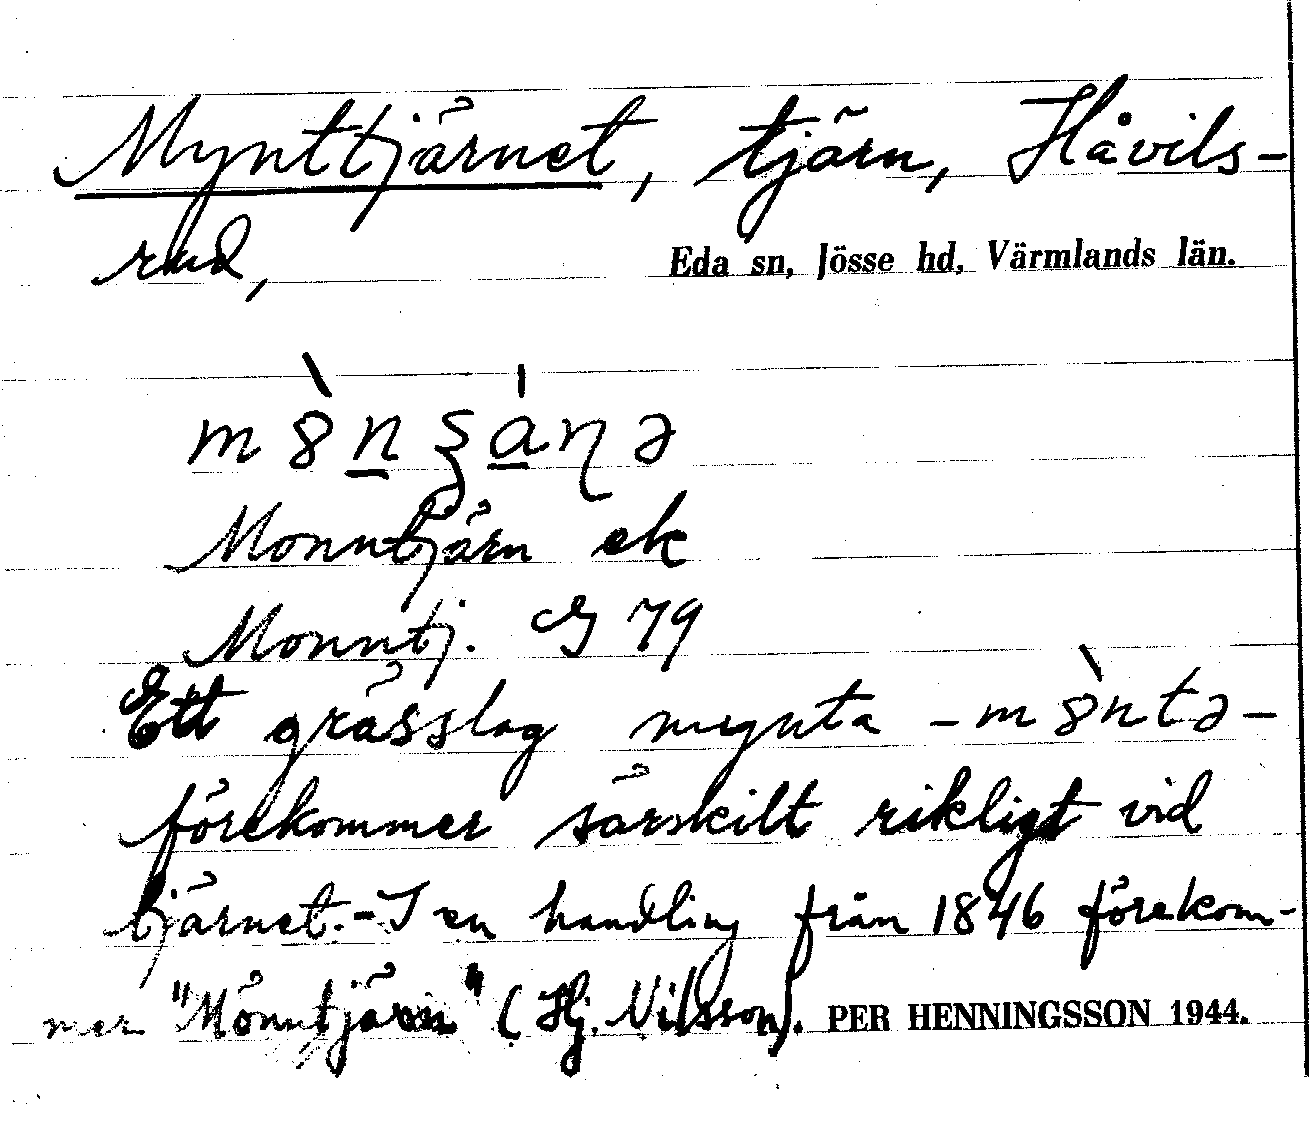 Mynttjärnet, tjärn, Håvils-
rud, Eda sn, Jösse hd, Värmlands län.
Monntjärn ek
Monntj. G 79
Ett grässlag mynta
förekommer särskilt rikligt vid
tjärnet.- I en handling från 1846 förekom-
mer "Mönntjärn" (Hj. Nilsson). PER HENNINGSSON 1944.